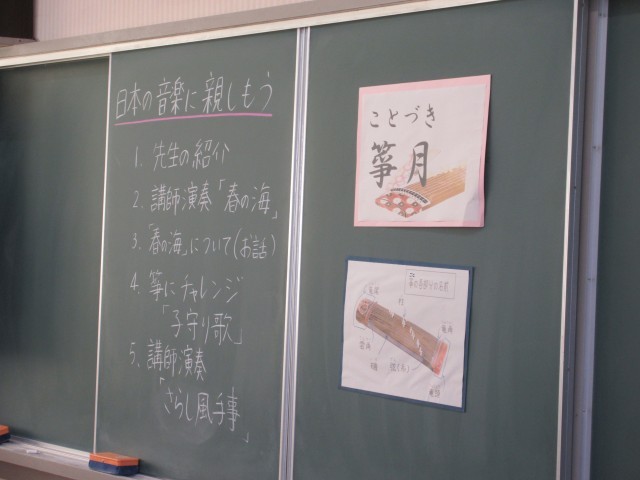 日本の音楽に親しもう
1. 先生の紹介
2. 講師演奏「春の海」
3. 「春の海」について(お話)
4. 箏にチャレンジ
「子守り歌」
5. 講師演奏
「さらし風手事」
ことづき
箏月
箏の各部分の名前
柱